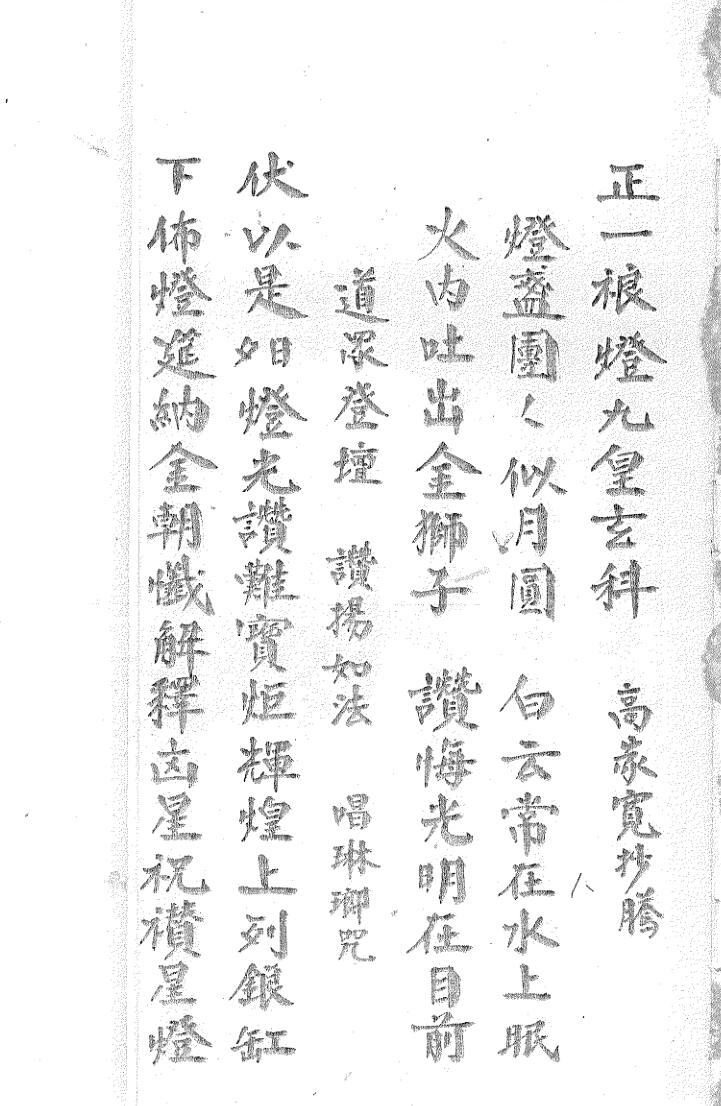 正一禳燈九皇玄科 高家寬抄騰
燈盞團〱似月圓 白云常在水上眠
火内吐出金獅子 讚悔光明在目前
道眾登壇 讚揚如法 唱琳瑯咒
伏以是日燈光讚難寶炬輝煌上列銀缸
下佈燈筵納金朝懺解釋凶星祝禳星燈